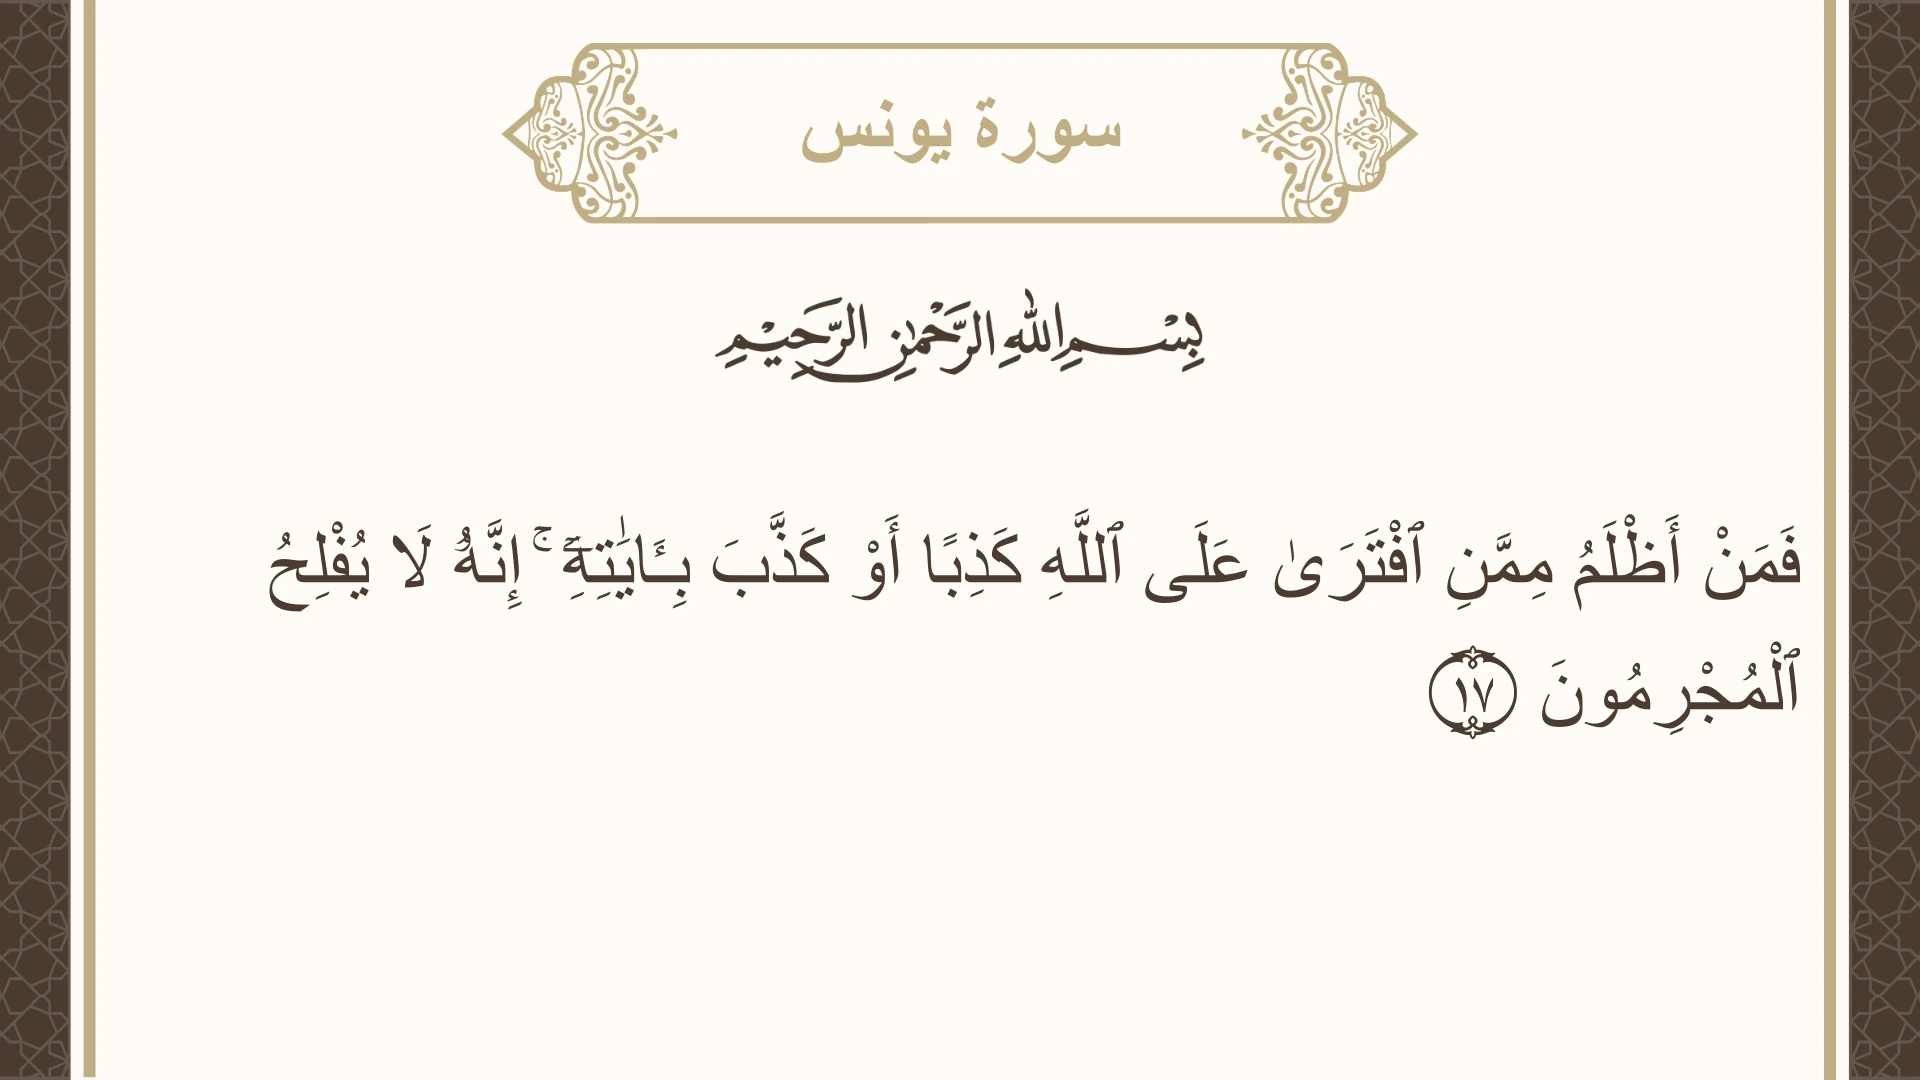 سورة يونس
بِسْمِ اللهِ الرَّحْمٰنِ الرَّحِيْمِ
فَمَنْ أَظْلَمُ مِمَّنِ ٱفْتَرَىٰ عَلَى ٱللَّهِ كَذِبًا أَوْ كَذَّبَ بِـَٔايَـٰتِهِۦٓ ۚ إِنَّهُۥ لَا يُفْلِحُ
ٱلْمُجْرِمُونَ ١٧